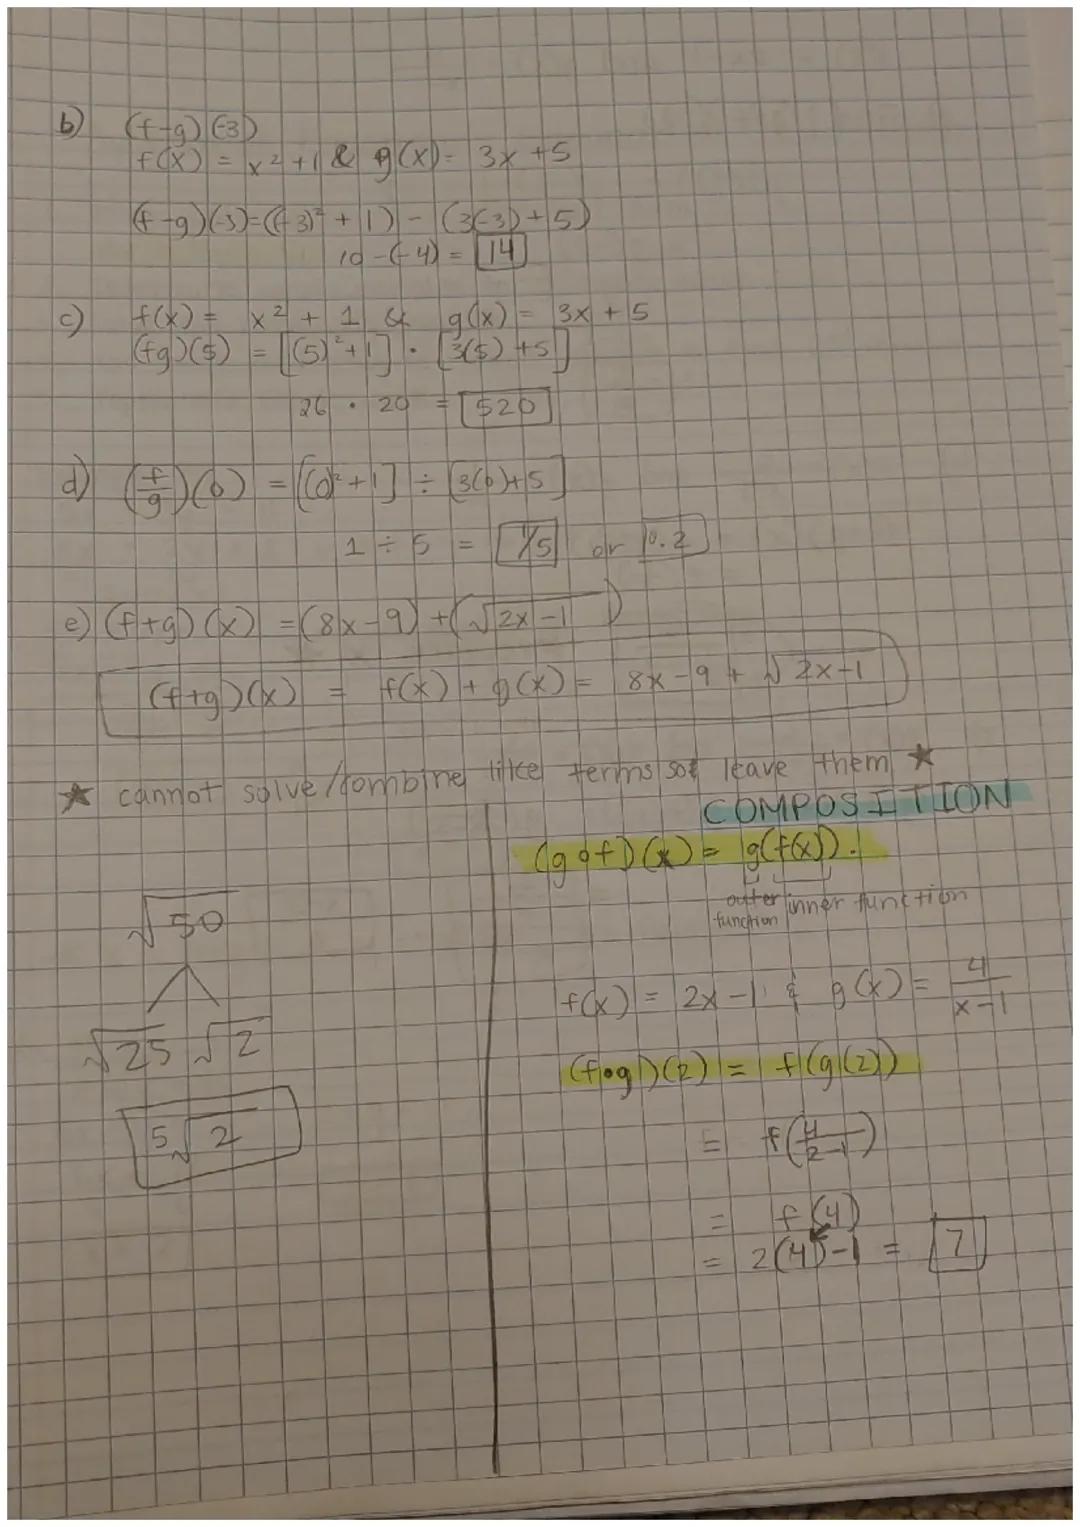 b) (f-g)(-3)
f(x) = x² + 1 & g(x) = 3x + 5
(f-g)(-3)=((-3)² + 1) - (3(-3) + 5)
10 - (-4) = 14
c) f(x) = x² + 1 & g(x) = 3x + 5
(fg)(5) = [(5)² + 1] · [3(5) + 5]
26 · 20 = 520
d) (f/g)(0) = [(0)² + 1] ÷ [3(0) + 5]
1 ÷ 5 = 1/5 or 0.2
e) (f+g)(x) = (8x - 9) + (√2x - 1)
(f+g)(x) = f(x) + g(x) = 8x - 9 + √2x-1
★ cannot solve/combine like terms so leave them ★
√50
√25 √2
5√2
COMPOSITION
(g o f)(x) = g(f(x)).
outer function inner function
f(x) = 2x - 1 & g(x) = 4/x-1
(f∘g)(2) = f(g(2))
= f(4/2-1)
= f(4)
= 2(4) - 1 = 7